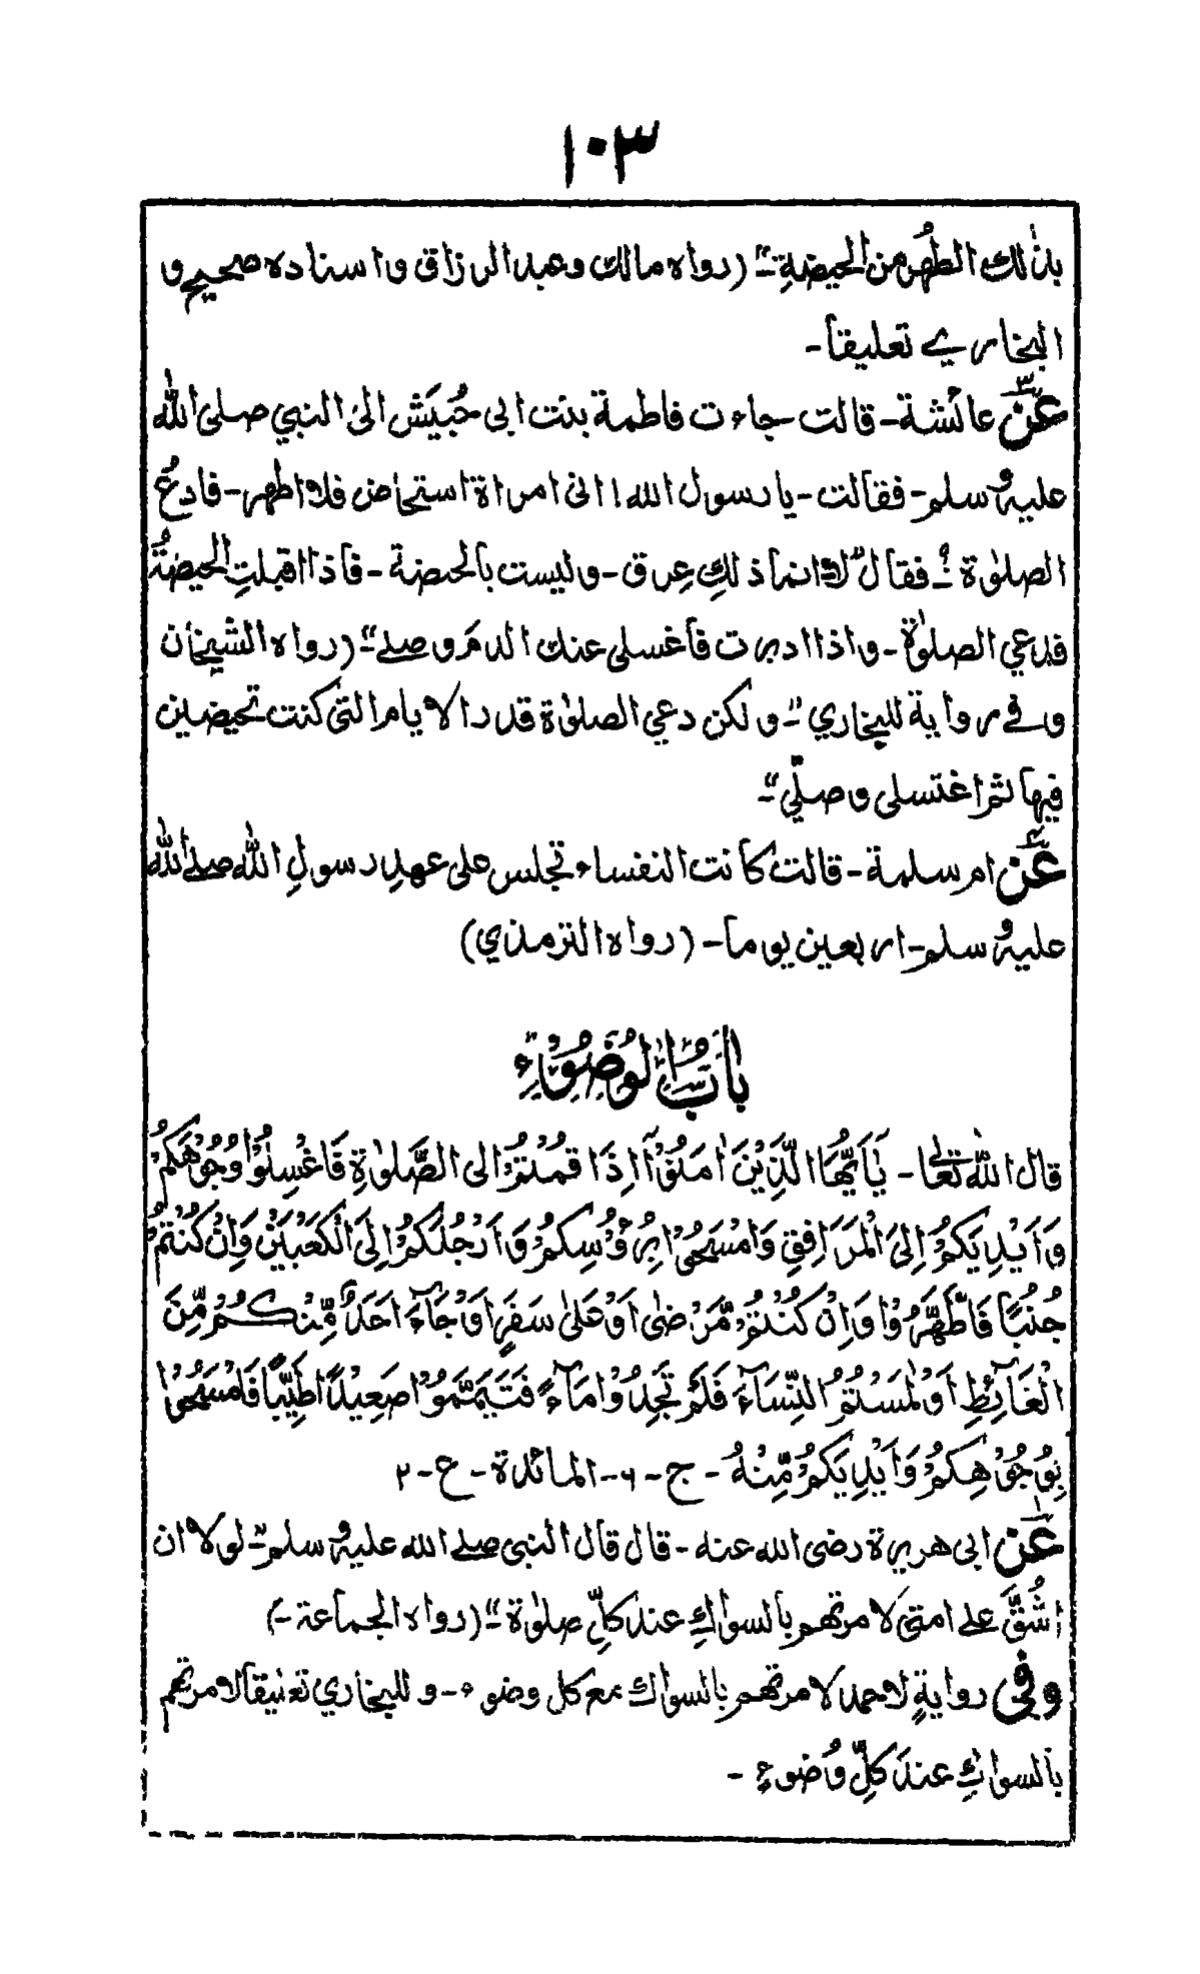 ١٠٣
بذٰلك الطهُر من الحيضةِ"ـ (رواه مالك وعبد الرزاق واسناده صحيح و
البخاري تعليقا-
عنؓ عائشة- قالت جاءت فاطمة بنت ابى حُبَيَش الى النبي صلى الله
عليہ وسلم- فقالت- يا رسول الله! انى امراة استحاض فلا اطهر- فادعُ
الصلوٰة؟ـ فقال "لا انما ذلكِ عِرق- وليست بالحضة- فاذا اقبلتِ الحيضةُ
فدعي الصلوٰة- واذا ادبرت فاغسلى عنك الدمَ وصلے"ـ (رواه الشيخان
وفے رواية للبخاري"ـ ولكن دعي الصلوٰة قدر الايام التى كنت تحيضين
فيها ثم اغتسلى وصلّي"ـ
عنؓ ام سلمة- قالت كانت النفساء تجلس على عهدِ رسولِ الله صلے الله
عليہ وسلم- اربعين يوما- (رواه الترمذي)
بابُ الوُضُوْءِ
قال الله تعالٰى- يٰاَيُّهَا الَّذِيْنَ اٰمَنُوْٓا اِذَا قُمْتُمْ اِلى الصَّلوٰةِ فَاغْسِلُوْا وُجُوْهَكُمْ
وَاَيْدِيَكُمْ اِلىَ الْمَرَافِقِ وَامْسَحُوْا بِرُءُوْسِكُمْ وَاَرْجُلَكُمْ اِلىَ الْكَعْبَيْنِ وَاِنْ كُنْتُمْ
جُنُبًا فَاطَّهَّرُوْا وَاِنْ كُنْتُمْ مَّرْضٰى اَوْ عَلىٰ سَفَرٍ اَوْ جَآءَ اَحَدٌ مِّنْكُمْ مِّنَ
الْغَآئِطِ اَوْ لٰمَسْتُمُ النِّسَآءَ فَلَمْ تَجِدُوْا مَآءً فَتَيَمَّمُوْا صَعِيْدًا طَيِّبًا فَامْسَحُوْا
بِوُجُوْهِكُمْ وَاَيْدِيَكُمْ مِّنْهُ- ج-٦- المائدة- ع-٢
عنؓ ابى هريرة رضى الله عنه- قال قال النبى صلے الله عليہ وسلم-"لولا ان
اشُقَّ علے امتى لامرتهم بالسواكِ عند كلِّ صلوٰة"ـ (رواه الجماعة-)
وفى روايةٍ لاحمد لامرتهم بالسواك مع كل وضوء- وللبخاري تعليقا لامرتهم
بالسواكِ عندَ كلِّ وُضوءٍ-